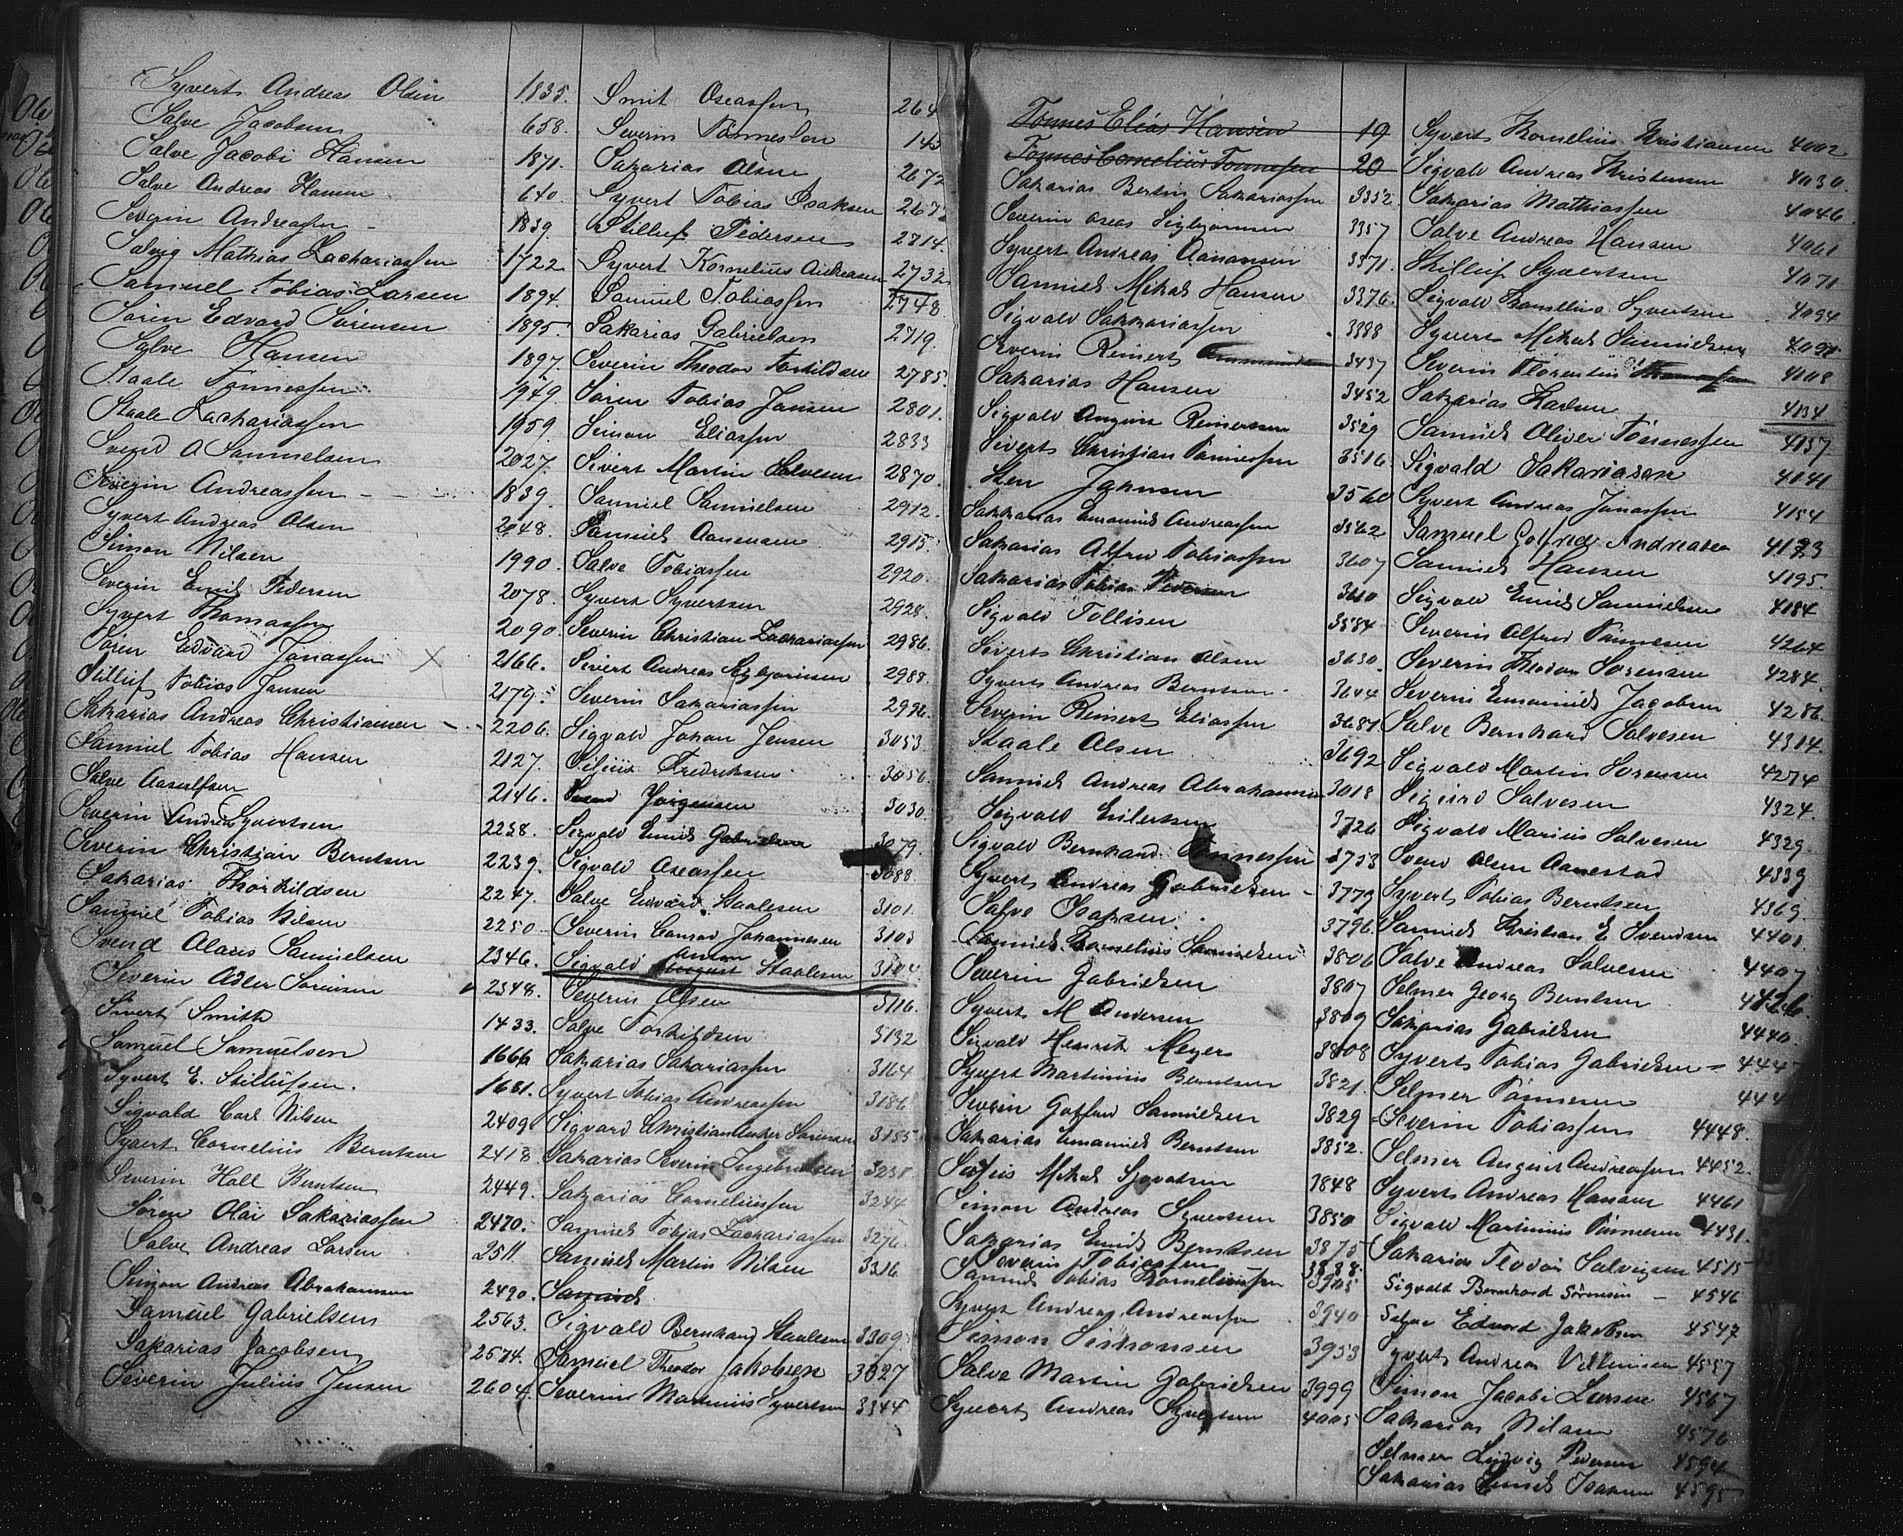 Syvert Andreas Olsen 1835.
Salve Jacobsen 658.
Salve Jacobi Hansen 1871.
Salve Andreas Hansen 640.
Severin Andreassen 1839.
Salvig Mathias Zachariassen 1722
Samuel Tobias Larsen 1894.
Sören Edvard Sörensen 1895.
Salve Hansen 1897.
Staale Tönnessen 1949.
Staale Zachariassen 1959.
Svend O Samuelsen 2027.
Severin Andreassen 1839.
Syvert Andreas Olsen 2048.
Simon Nilsen 1990.
Severin Emil Pedersen 2078.
Syvert Thomassen 2090.
Sören Edvard Jonassen 2166.
Stilluf Tobias Jansen 2179.
Sakarias Andreas Christiansen 2206.
Samuel Tobias Hansen 2127.
Salve Aasulfsen 2146.
Severin Andreas Syvertsen 2238.
Severin Christian Berntsen 2239.
Sakarias Thorkildsen 2247.
Samuel Tobias Nilsen 2250.
Svend Olaus Samuelsen 2346.
Severin Adler Sörensen 2348.
Sivert Smith 1433.
Samuel Samuelsen 1666.
Syvert E. Stillufsen. 1681.
Sigvald Carl Nilsen 2409.
Syvert Cornelius Berntsen 2418.
Severin Hall Berntsen 2449.
Sören Olai Sakariassen 2470.
Salve Andreas Larsen 2511.
Simon Andreas Abrahamsen 2490.
Samuel Gabrielsen 2563.
Sakarias Jacobsen 2574.
Severin Julius Jensen 2604.
Smit Oseassen 264
Severin Tönnessen 145
Sakarias Olsen 2672
Syvert Tobias Isaksen 267
Stilluf Pedersen 2714.
Syvert Kornelius Andreasen 2732
Samuel Tobiassen 2748.
Sakarias Gabrielsen 2719.
Severin Theodor Torkildsen 2785.
Sören Tobias Jansen 2801.
Simon Eliassen 2833
Sivert Martin Salvesen 2870.
Samuel Samuelsen 2912.
Samuel Aanensen 2915.
Salve Tobiassen 2920.
Syvert Syvertsen 2928.
Severin Christian Zachariassen 2986.
Sivert Andreas 2988.
Severin Sakariassen 2996.
Sigvald Johan Jensen 3053.
Silius Fredriksen 3056.
Svend Jörgensen 3030.
Sigvald Emil Gabrielsen 3079.
Sigvald Oseassen 3088.
Salve Edvard Staalesen 3101.
Severin Conrad Johannesen 3103
Anton
Sigvald August Staalesen 3104
Severin Olsen 3116.
Salve Torkildsen 3132
Sakarias Sakariassen 3164
Syvert Tobias Andreassen 3186
Sigvard Christian Sörensen 3155
Sakarias Severin Ingebretsen 3238.
Sakarias Corneliussen 3244
Samuel Tobias Zachariassen 3276.
Samuel Martin Nilsen 3316
Samuel
Sigvald Bernhard Staalesen 3309.
Samuel Theodor Jakobsen 3027
Severin Martinius Syvertsen 3344
Tönnes Elias Hansen 19
Tönnes Cornelius Tönnessen 20
Sakarias Bertin Sakariassen 3352.
Severin Oseas 3357
Syvert Andreas Aanensen 3371.
Samuel Mikal Hansen 3376.
Sigvald Sakkariassen 3388
Severin Reinert 3437
Sakarias Hansen 3452
Sigvald August Reinertsen 3529
Siverts Christian Tönnessen 3516.
Sten Johnsen 3560
Sakkarias Emanuel Andreassen 3562
Sakarias Alfred Tobiassen 3607
Sakarias Tobias Pedersen 3610
Sigvald Tollisen 3584.
Siverts Christian Olsen 3630.
Syverts Andreas Berntsen 3644
Severin Reinert Eliassen 3687
Staale Olsen 3692
Samuel Andreas Abrahamsen 3018
Sigvald Eilertsen 3726
Sigvald Bernhard Tönnessen 3753
Syvert Andreas Gabrielsen 3779
Salve Isaksen 3796.
Samuel Kornelius Samuelsen 3806
Severin Gabrielsen 3807
Syvert M Andersen 3809
Sigvald Henrik Meyer 3808
Syvert Martinius Berntsen 3821.
Severin Gotfred Samuelsen 3829
Sakarias Emanuel Berntsen 3852.
Mikal 3848
Simon Andreas Syvertsen 3850
Sakarias Emil Berntsen 3875
Severin Tobiassen 3888.
Samuel Tobias Korneliussen 3905
Syvert Andreas Andreassen 3940
Simon Simonsen 3953
Salve Martin Gabrielsen 3999
Syvert Andreas Syvertsen 4005
Syvert Kornelius Kristiansen 4002
Sigvald Andreas Kristensen 4030.
Sakarias Mathiassen 4046.
Salve Andreas Hansen 4061
Stilluf Syvertsen 4071
Sigvald Kornelius Syvertsen 4094
Syvert Mikal Samuelsen 4098
Severin Florentin 4108
Sakarias Karlsen 4134
Samuel Oliver Tönnessen 4137
Sigvald Sakariasen 4141
Syvert Andreas Jonassen 4154
Samuel Gotfred Andreasen 4173
Samuel Hansen 4195.
Sigvald Emil Samuelsen 4184
Severin Alfred Tönnesen 4264
Severin Theodor Sörensen 4284.
Severin Emanuel Jacobsen 4286.
Salve Bernhard Salvesen 4314.
Sigvald Martin Sörensen 4274
Sigurd Salvesen 4324.
Sigvald Marius Salvesen 4329.
Svend Olsen Aanestad 4339
Syvert Tobias Berntsen 4369.
Samuel Kristian E Svendsen 4401
Salve Andreas Salvesen 4407
Selmer Georg Berntsen 4426.
Sakarias Gabrielsen 4440.
Syvert Tobias Gabrielsen 444
Selmer Tönnesen 444
Severin Tobiassen 4448.
Selmer August Andreassen 4452.
Syvert Andreas Hansen 4461
Sigvald Martinius Tönnesen 4431.
Sakarias Teodor Salvesen 4515
Sigvald Bernhard Sörensen 4546
Salve Edvard Jakobsen 4547
Syvert Andreas Villumsen 4557
Simon Jacobi Larsen 4567
Sakarias Nilsen 4576
Selmer Ludvig Pedersen 4594
Sakarias Emil Isaksen 4595